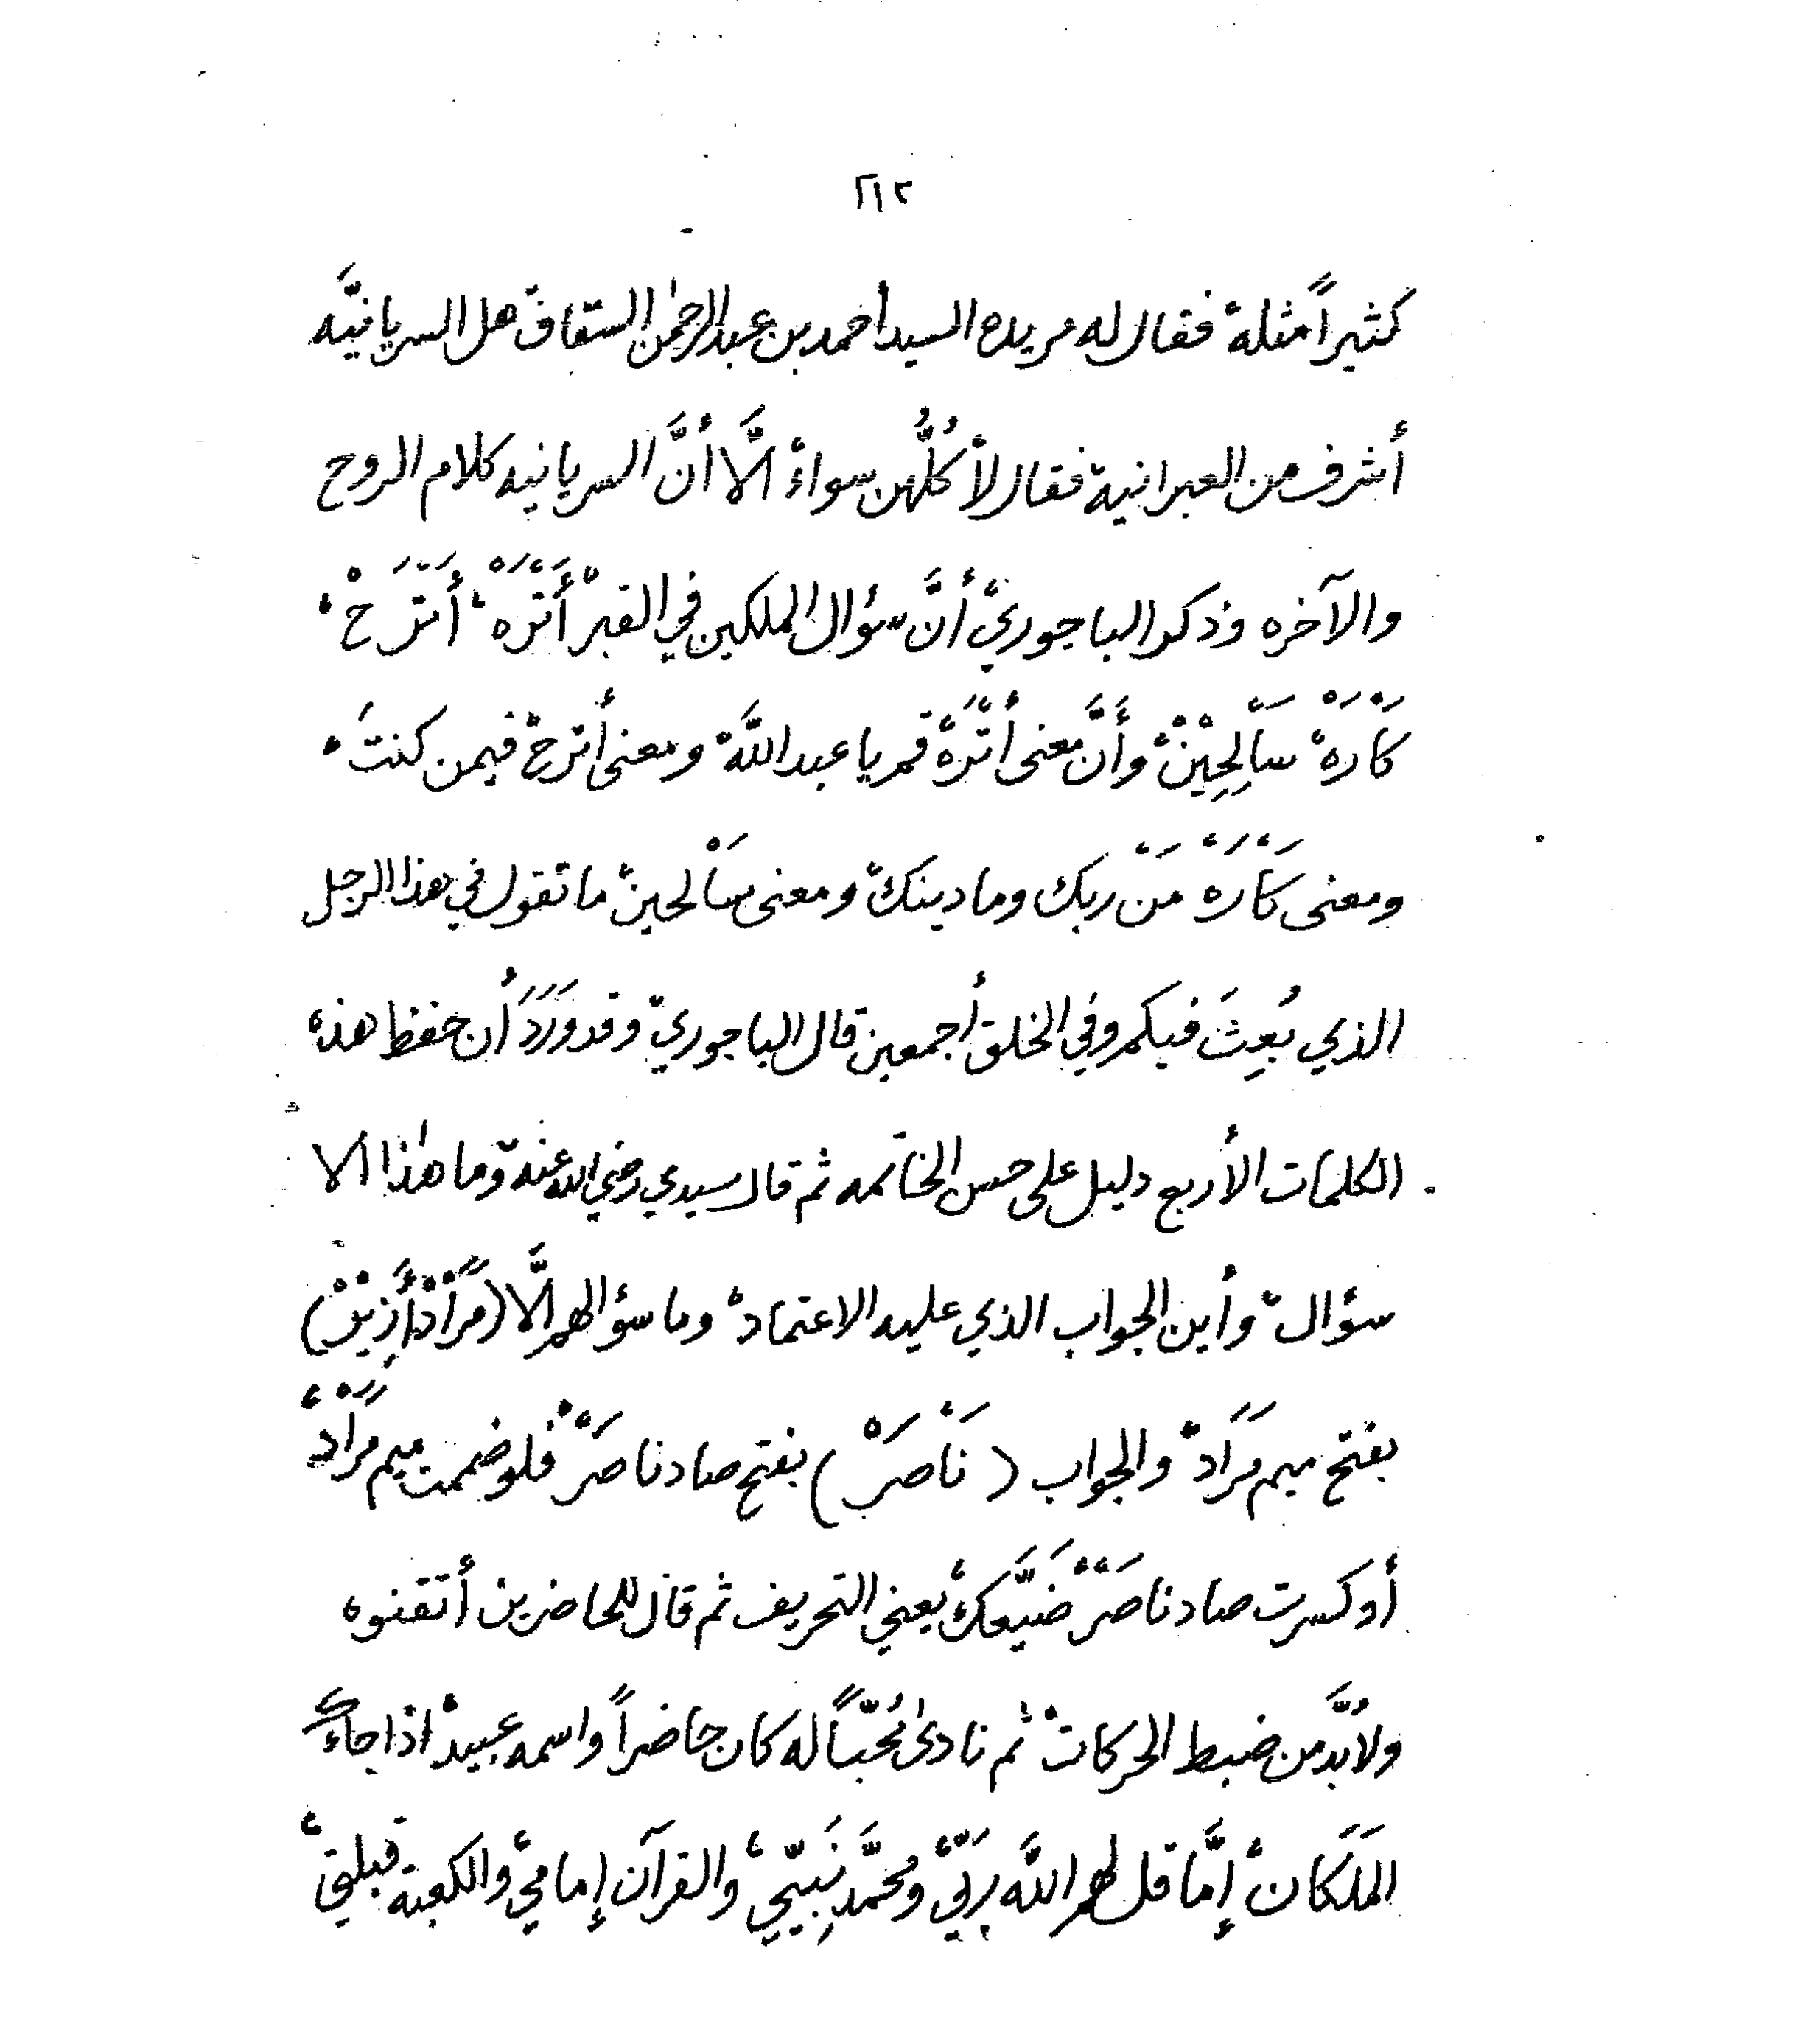 ٢١٢
كثيراً مثلة فقال له مريده السيد أحمد بن عبد الرحمٰن السقاف هل السريانيَّه
أشرف من العبرانية فقال لاْ كُلُّهن سواءْ الَّا أنَّ السريانيه كلام الروح
والآخره وذكر الباجوريْ أنَّ سؤال الملكين في القبرْ أَتْرَهْ، أَتْرَحْ،
كَاْرَهْ، سَاْلِحِيْنْ، وأَنَّ معنى أَتْرَهْ قم يا عبد اللَّهْ ومعنى أترحْ فيمن كنتَ،
ومعنى كَاْرَهْ مَنْ ربك وما دينكْ ومعنى سَاْلحينْ ما تقول في هذا الرجل
الذي بُعِثَ فيكم وفي الخلق أجمعين قال الباجوريْ وقد وَرَدَ أن حفظ هذه
الكلمات الأربع دليل على حسن الخاتمه ثم قال سيدي رضي الله عنهْ وما هٰذا الا
سؤالْ وأين الجواب الذي عليه الاعتمادْ وما سؤالهم الَّا (مَرَاْدْ أَزِيْنْ)
بفتح ميم مَرَادْ والجواب ( نَاْصَرْ ) بفتح صاد ناصَرْ فلو ضممت ميم مَرَاْدْ
أو كسرت صاد ناصَرْ ضَيَّعكْ يعني التحريف ثم قال للحاضرين أتقنوه
ولابُدَّ من ضبط الحركاتْ ثم نادىٰ مُحبّاً له كان حاضراً واسمه عبيدْ اذا جاءَك
المَلَكانْ إمَّا قل لهم اللَّه رَبّيْ ومُحمَّد نَبِيّيْ، والقرآن إماميْ والكعبة قبلتيْ